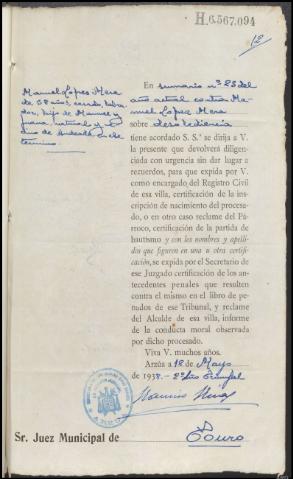 H.6.567.094
12
Manuel López Mera
de 58 años, casado, labra-
dor, hijo de Manuel y
Juana, natural y
término
En sumario nº 25 del
año actual contra Ma-
nuel López Mera
sobre desobediencia
tiene acordado S. Sª se dirija a V.
la presente que devolverá diligen-
ciada con urgencia sin dar lugar a
recuerdos, para que expida por V.
como encargado del Registro Civil
de esa villa, certificación de la ins-
cripción de nacimiento del procesa-
do, o en otro caso reclame del Pá-
rroco, certificación de la partida de
bautismo y con los nombres y apelli-
dos que figuren en una u otra certifi-
cación, se expida por el Secretario de
ese Juzgado certificación de los an-
tecedentes penales que resulten
contra el mismo en el libro de pe-
nados de ese Tribunal, y reclame
del Alcalde de esa villa, informe
de la conducta moral observada
por dicho procesado.
Viva V. muchos años.
Arzúa a 18 de Mayo
de 1938.- 2º Año Triunfal
Sr. Juez Municipal de Touro